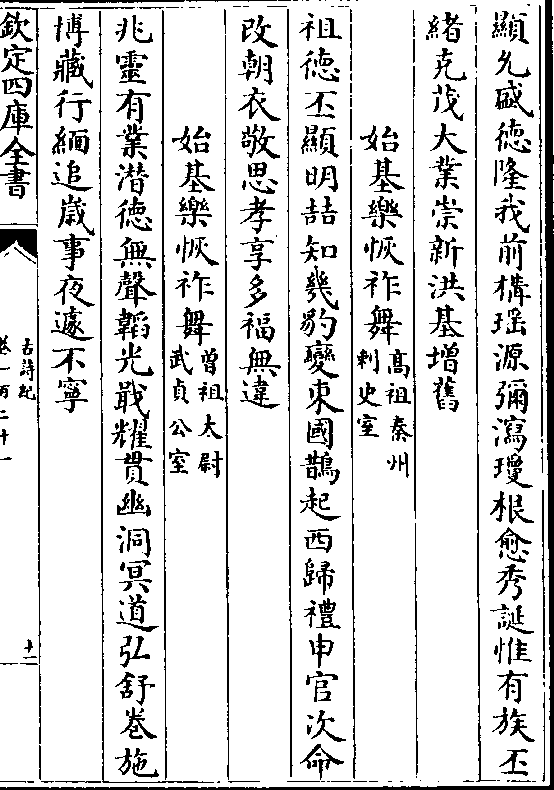 顯允盛德隆我前構瑶源彌瀉瓊根愈秀誕惟有族丕
緒克茂大業崇新洪基增舊
始基樂恢祚舞高祖秦州刺史室
祖徳丕顯明喆知㡬豹變東國鵲起西歸禮申官次命
改朝衣敬思孝享多福無違
始基樂恢祚舞曽祖太尉武貞公室
兆靈有業潜徳無聲韜光戢耀貫幽洞冥道弘舒卷施
博藏行緬追歳事夜遽不寧
欽定四庫全書
古詩紀
卷一百二十一
十一